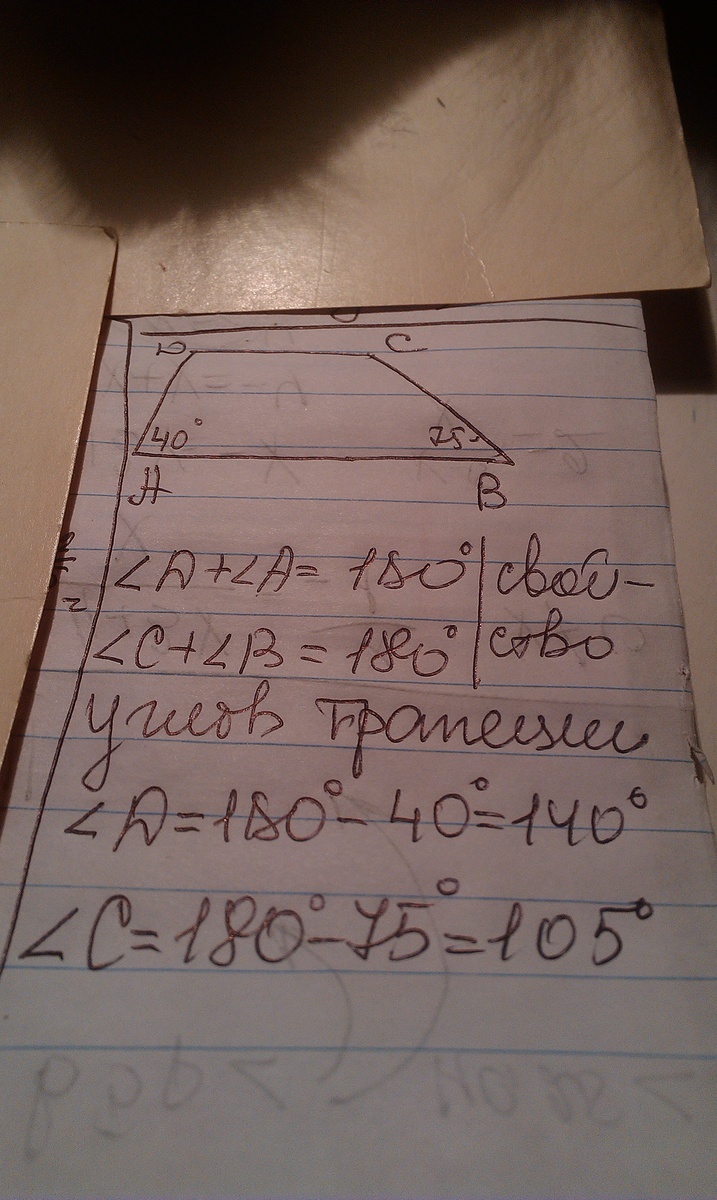 D C
40° 75°
A B
∠D+∠A= 180° | свой-
∠C+∠B = 180° | ство
углов трапеции
∠D=180°-40°=140°
∠C=180°-75°=105°